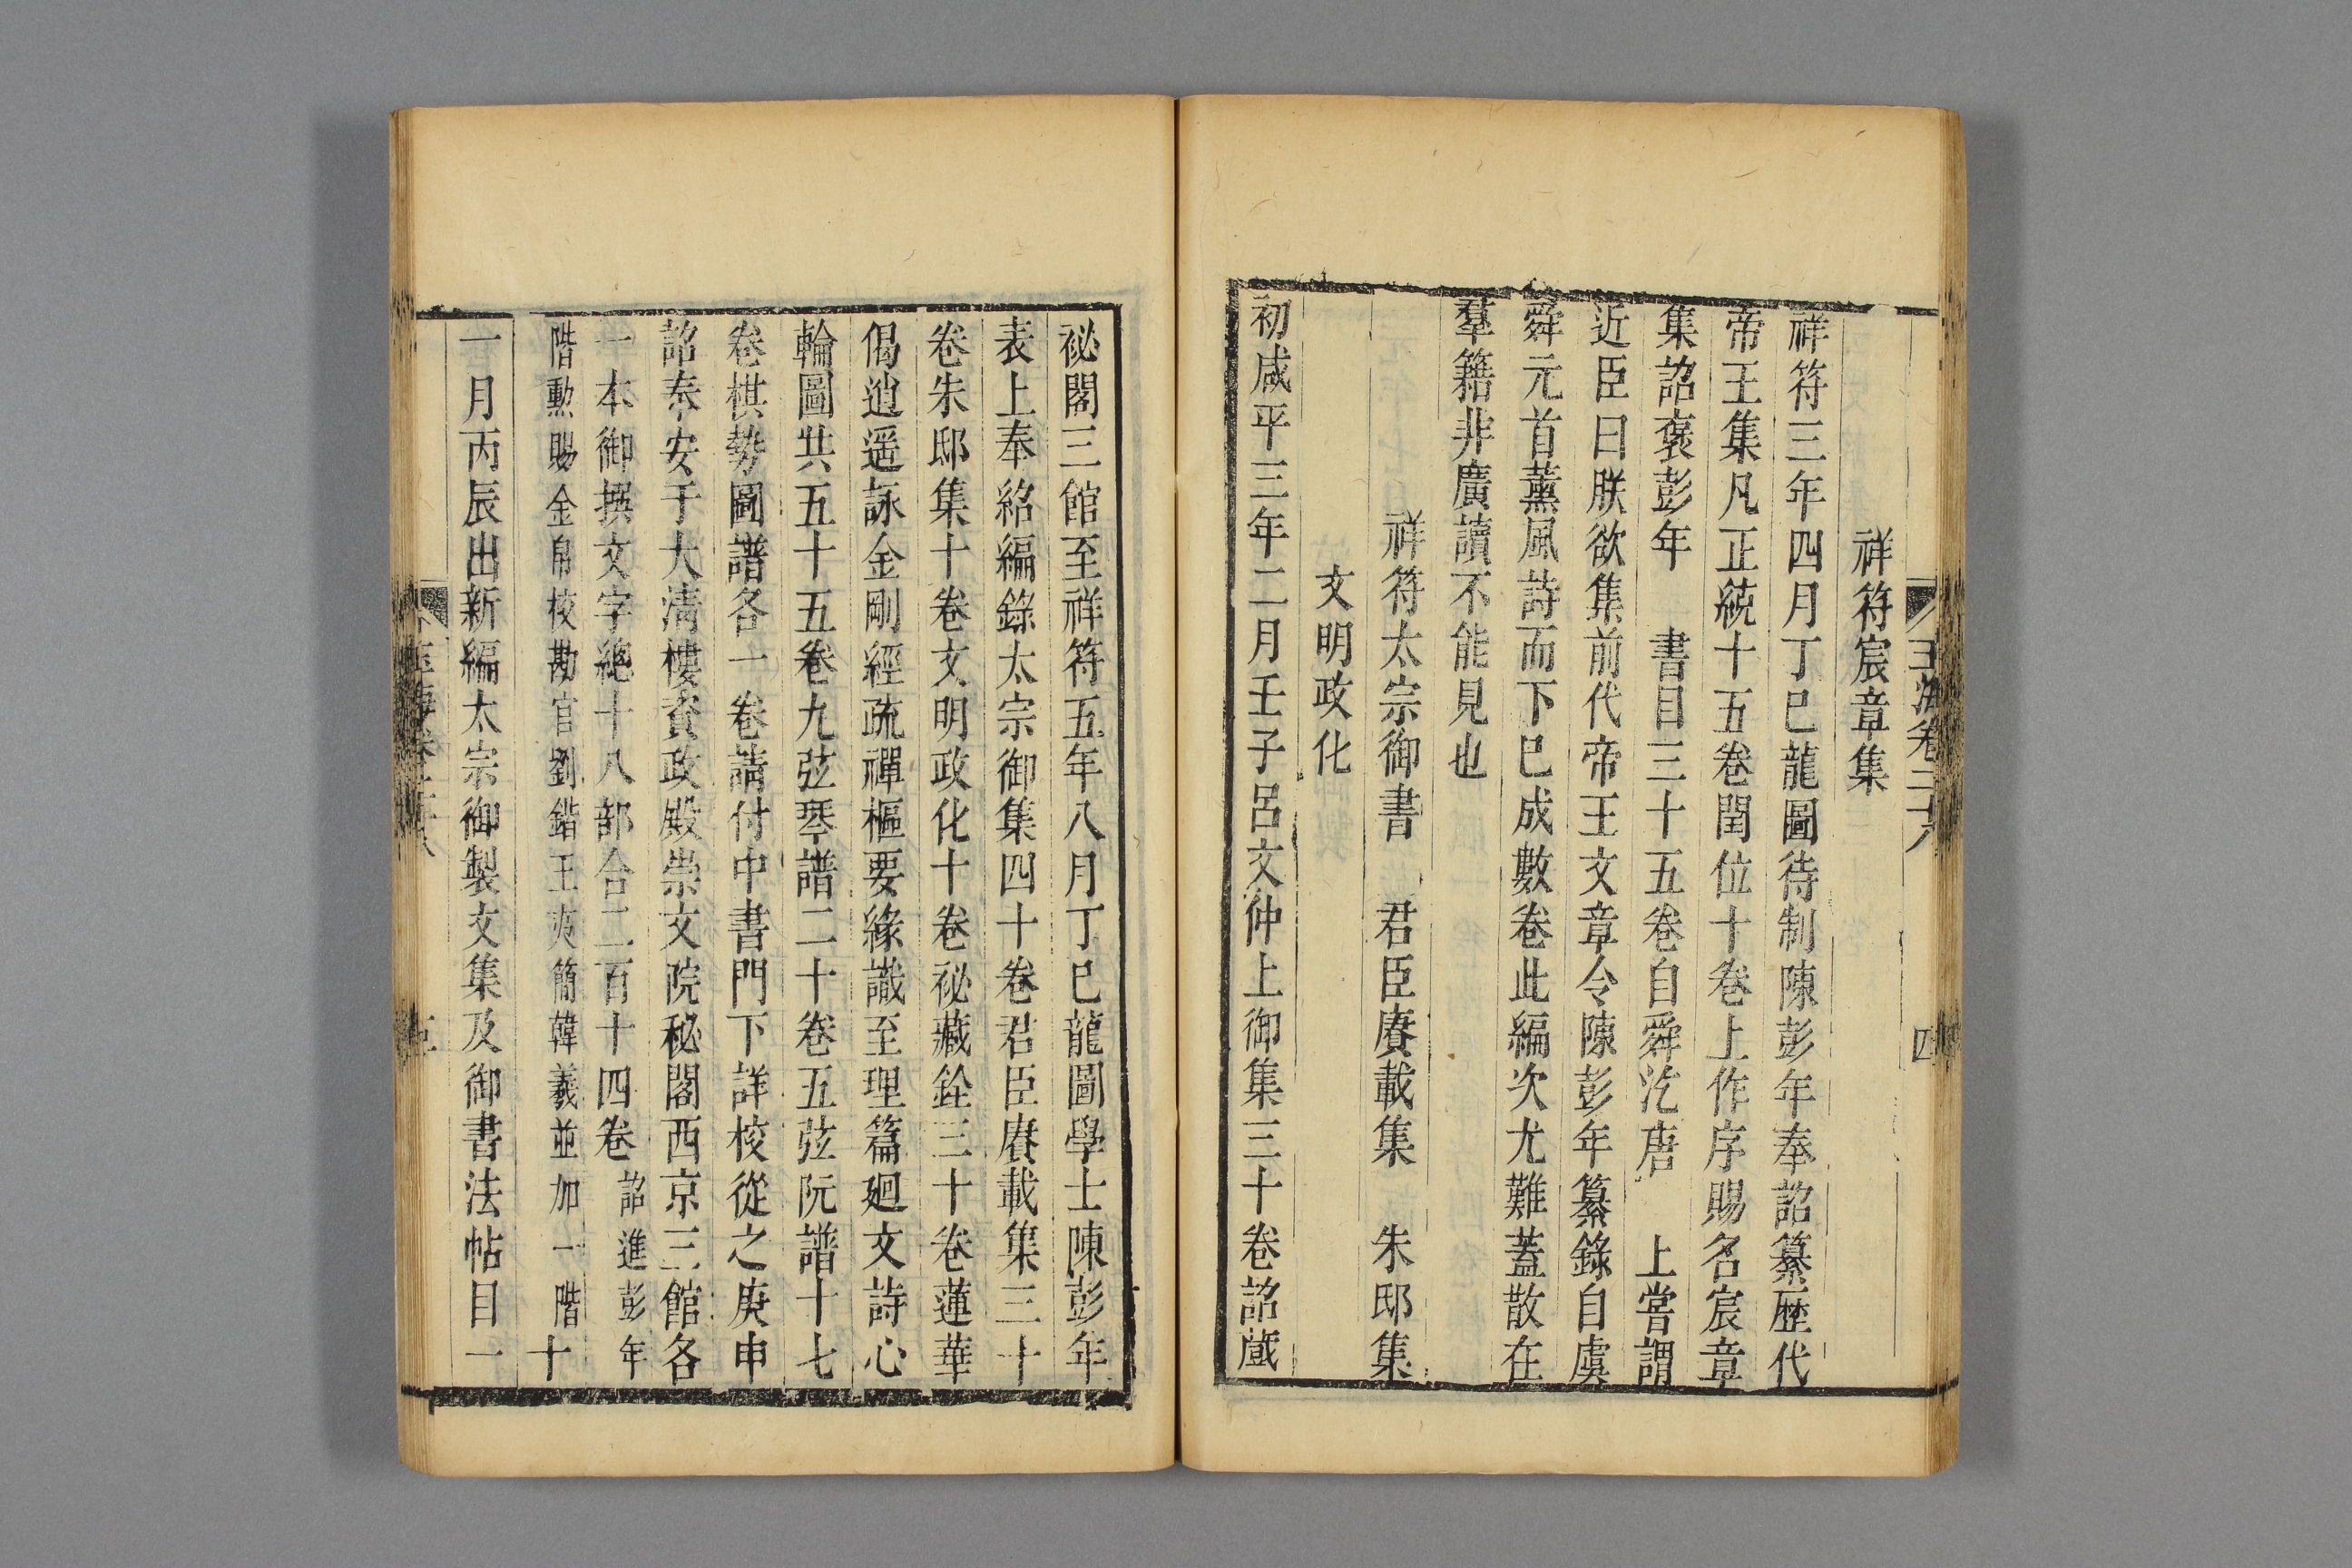 玉海卷二十八 四
祥符宸章集
祥符三年四月丁巳龍圖待制陳彭年奉詔纂歷代
帝王集凡正統十五卷閏位十卷上作序賜名宸章
集詔褒彭年 書目三十五卷自舜訖唐 上嘗謂
近臣曰朕欲集前代帝王文章令陳彭年纂錄自虞
舜元首薰風詩而下巳成數卷此編次尤難蓋散在
羣籍非廣讀不能見也
祥符太宗御書 君臣賡載集 朱邸集
文明政化
初咸平三年二月壬子呂文仲上御集三十卷詔藏
祕閣三館至祥符五年八月丁巳龍圖學士陳彭年
表上奉紹編錄太宗御集四十卷君臣賡載集三十
卷朱邸集十卷文明政化十卷祕藏銓三十卷蓮華
偈逍遥詠金剛經疏禪樞要緣識至理篇廻文詩心
輪圖共五十五卷九弦琴譜二十卷五弦阮譜十七
卷棋勢圖譜各一卷請付中書門下詳校從之庚申
詔奉安于大清樓資政殿崇文院秘閣西京三館各
一本御撰文字總十八部合二百十四卷 詔進彭年
階勲賜金帛校勘官劉鍇王夷簡韓羲並加一階 十
一月丙辰出新編太宗御製文集及御書法帖目一